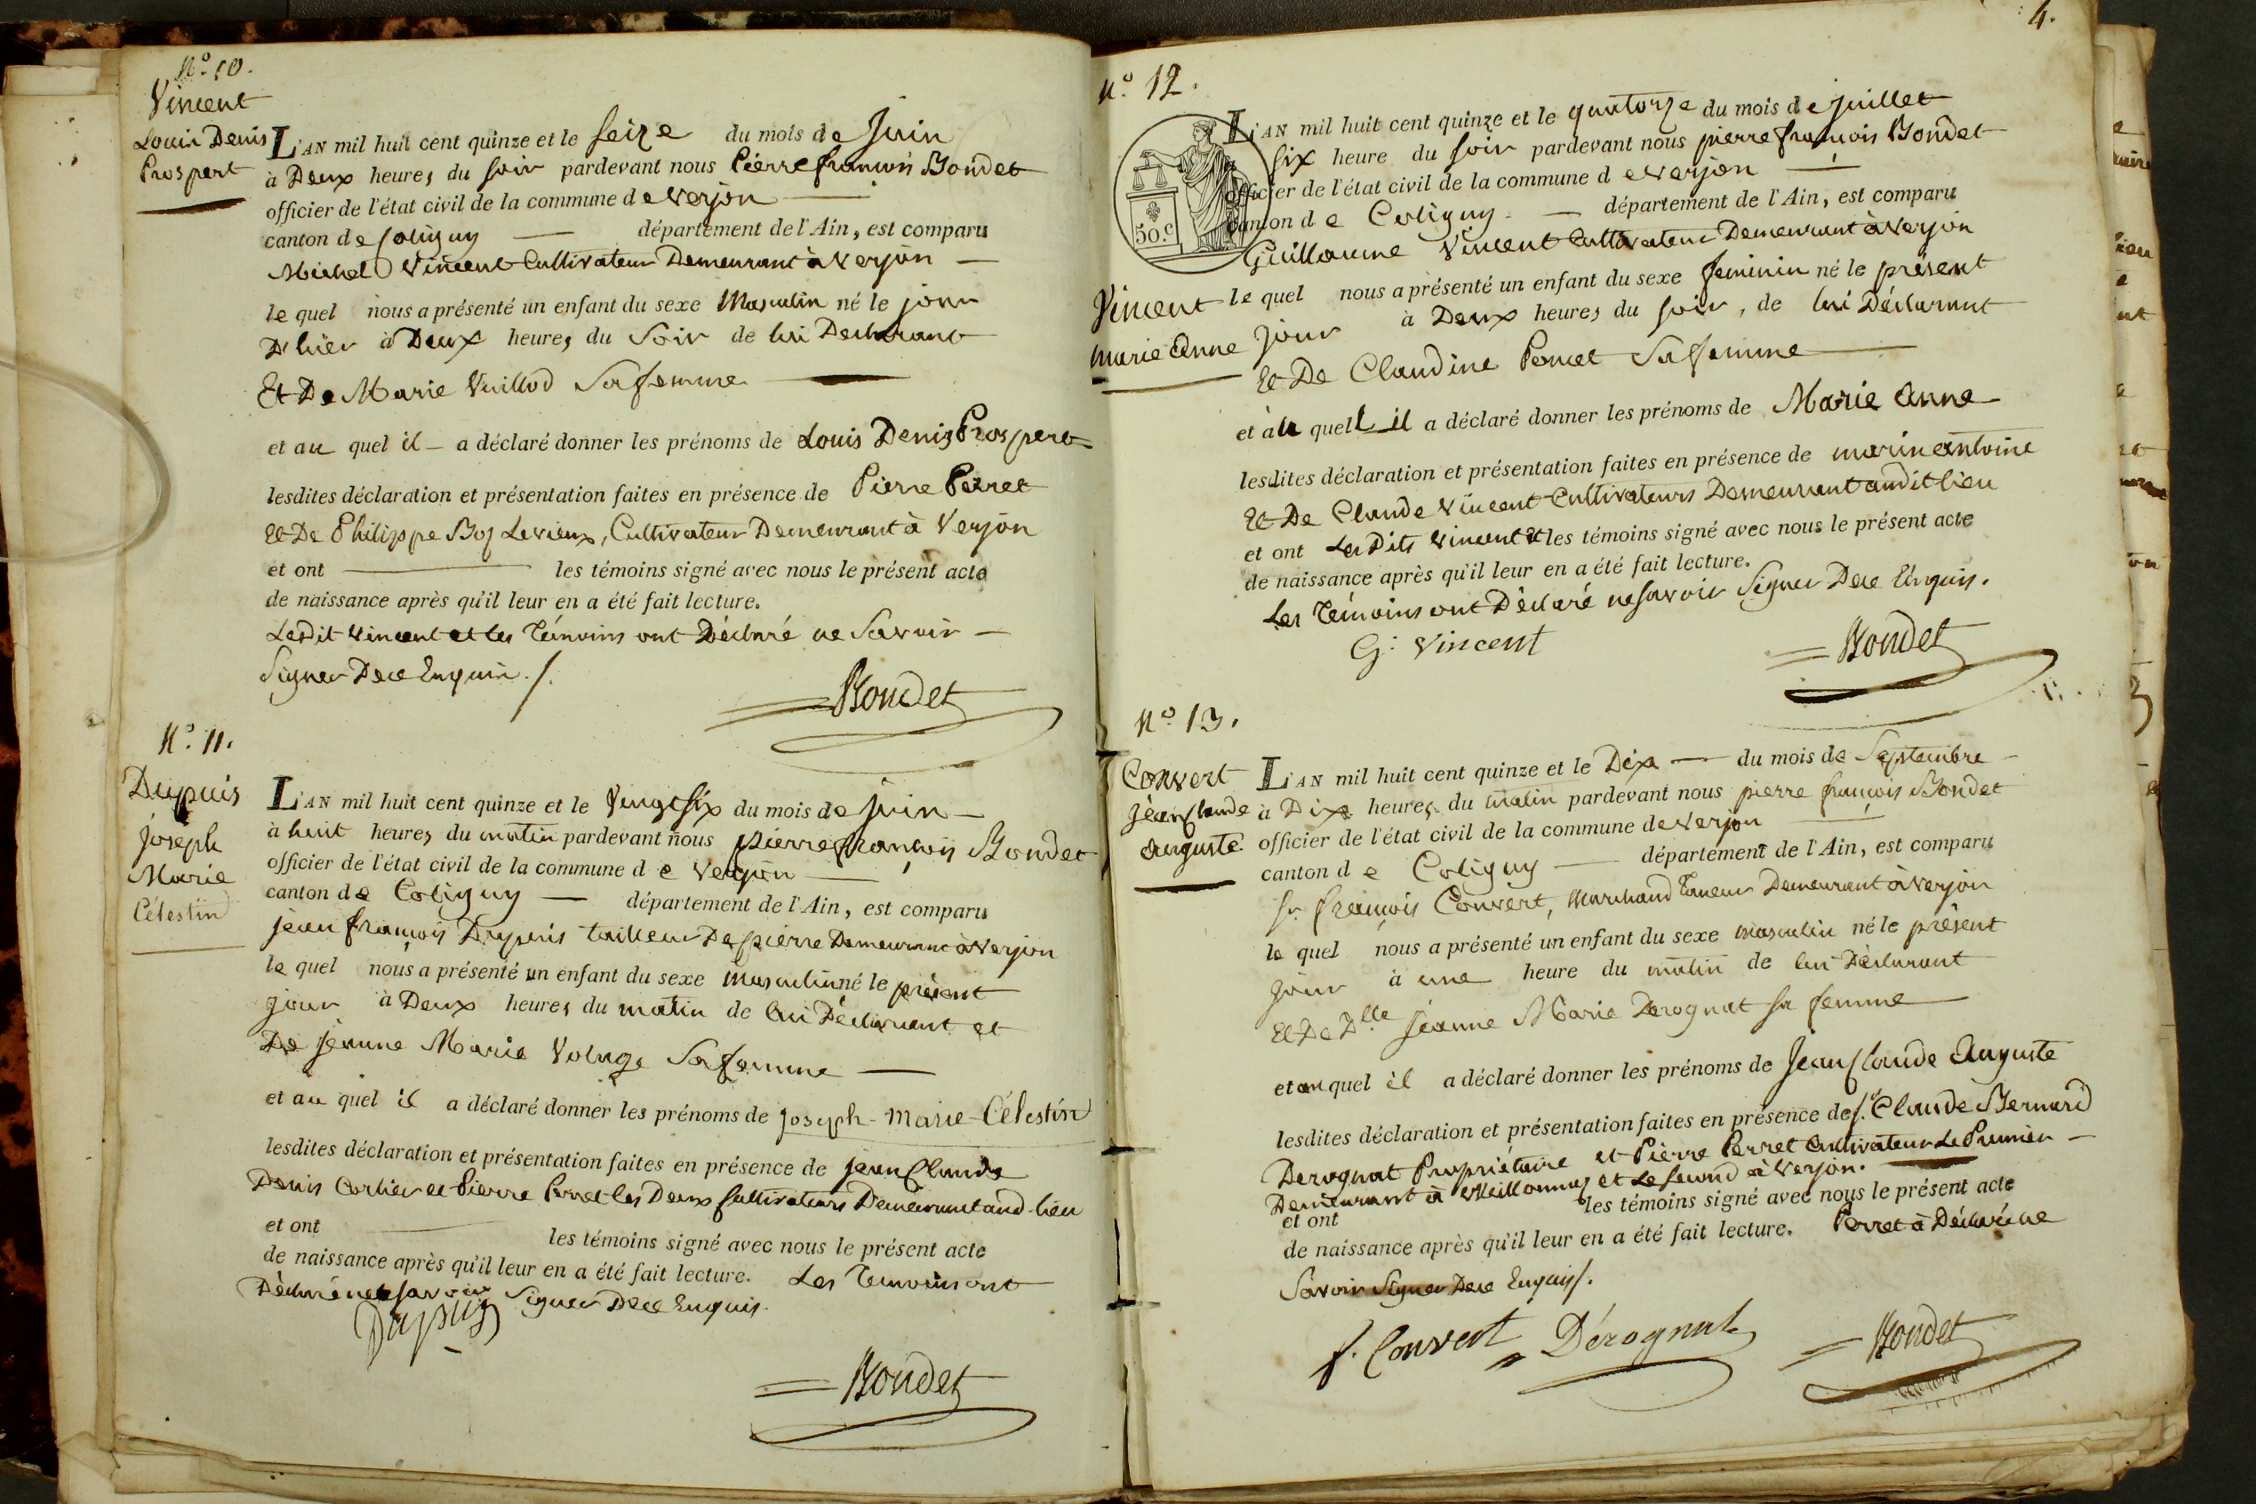 N.º 10.
Vincent
Louis Denis
Prospert
L'AN mil huit cent quinze et le Seize du mois de Juin
à Deux heures du soir pardevant nous Pierre françois Bondet
officier de l'état civil de la commune de verjon
canton de Coligny département de l'Ain, est comparu
Michel Vincent Cultivateur Demeurant à Verjon
le quel nous a présenté un enfant du sexe Masculin né le jour
D'hier à Deux heures du Soir de lui Declarant
Et De Marie Vuillod Sa femme
et au quel il a déclaré donner les prénoms de Louis Denis Prospert
lesdites déclaration et présentation faites en présence de Pierre Perret
Et De Philippe Boz Le vieux, Cultivateur Demeurant à Verjon
et ont les témoins signé avec nous le présent acte
de naissance après qu'il leur en a été fait lecture.
Ledit Vincent et les Témoins ont Déclaré ne Savoir
Signer De ce Enquis ./.
Bondet
N.º 11.
Dupuis
joseph
Marie
Célestin
L'AN mil huit cent quinze et le Vingt six du mois de juin
à huit heures du matin pardevant nous pierre françois Bondet
officier de l'état civil de la commune de Verjon
canton de Coligny département de l'Ain, est comparu
jean françois Dupuis tailleur De pierre Demeurant à Verjon
le quel nous a présenté un enfant du sexe masculin né le présent
jour à Deux heures du matin de lui Déclarant et
De jeanne Marie Volage Sa femme
et au quel il a déclaré donner les prénoms de joseph-Marie-Célestin
lesdites déclaration et présentation faites en présence de jean Claude
Denis Cortier et Pierre Perret les Deux Cultivateurs Demeurant aud. lieu
et ont les témoins signé avec nous le présent acte
de naissance après qu'il leur en a été fait lecture. Les Temoins ont
Déclaré ne savoir Signer De ce Enquis.
Dupuis
Bondet
4.
N.º 12.
50.c
L'AN mil huit cent quinze et le quatorze du mois de juillet
à six heure du soir pardevant nous pierre françois Bondet
officier de l'état civil de la commune de verjon
canton de Coligny département de l'Ain, est comparu
Guillaume Vincent Cultivateur Demeurant à Verjon
Vincent
marie anne
le quel nous a présenté un enfant du sexe feminin né le présent
jour à Deux heures du soir, de lui Déclarant
Et De Claudine Poncet Sa femme
et à la quell il a déclaré donner les prénoms de Marie Anne
lesdites déclaration et présentation faites en présence de marin antoine
Et De Claude Vincent Cultivateurs Demeurant audit lieu
et ont Les Dits Vincent et les témoins signé avec nous le présent acte
de naissance après qu'il leur en a été fait lecture.
Les Témoins ont Déclaré ne savoir Signer De ce Enquis.
G. Vincent
Bondet
N.º 13.
Convert
jean Claude
auguste
L'AN mil huit cent quinze et le Dix du mois de Septembre
à Dix heures du matin pardevant nous pierre françois Bondet
officier de l'état civil de la commune de verjon
canton de Coligny département de l'Ain, est comparu
Sr. françois Convert, Marchand Taneur Demeurant à Verjon
le quel nous a présenté un enfant du sexe masculin né le présent
jour à une heure du matin de lui Déclarant
Et De Dlle jeanne Marie Derognat sa femme
et au quel il a déclaré donner les prénoms de Jean Claude Auguste
lesdites déclaration et présentation faites en présence de Sr. Claude Bernard
Derognat Propriétaire et Pierre Perret Cultivateur Le Premier
Demeurant à Meillonnas et Le second à Verjon.
et ont les témoins signé avec nous le présent acte
de naissance après qu'il leur en a été fait lecture. Perret à Déclaré ne
Savoir Signer De ce Enquis/.
f. Convert
Dérognat
Bondet